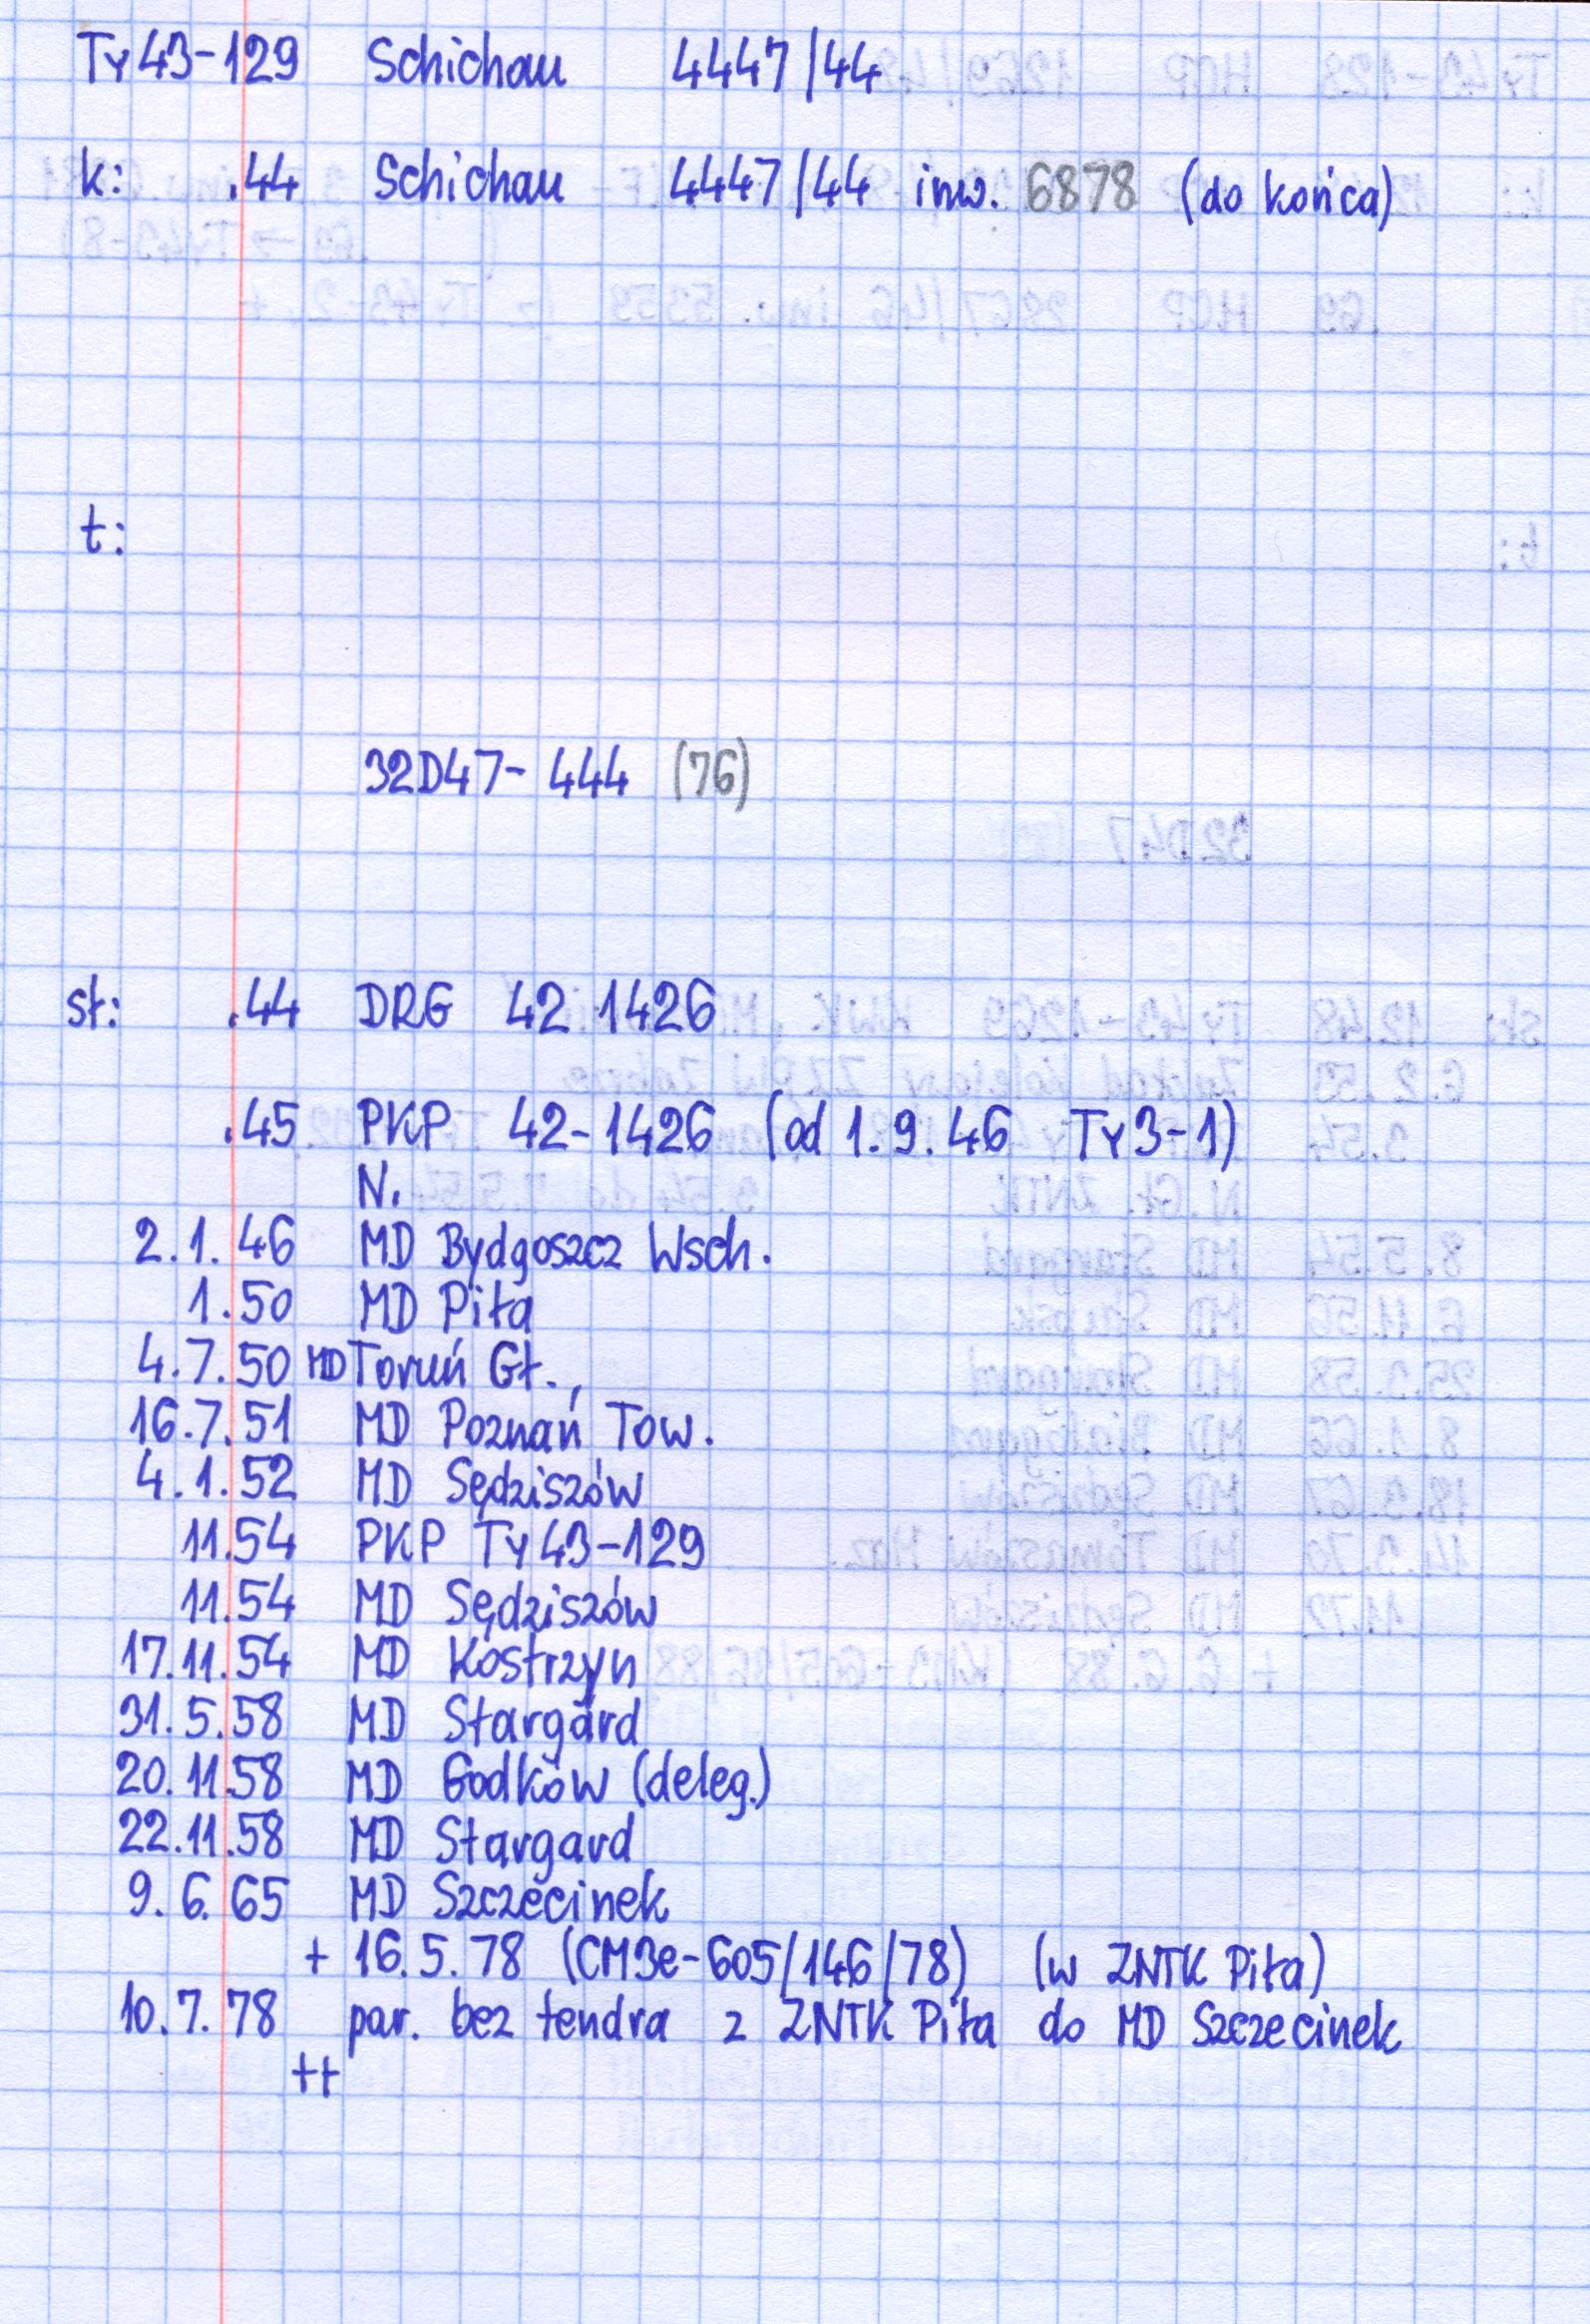 Ty43-129 Schichau 4447/44
k: .44 Schichau 4447/44 inw. 6878 (do końca)
t:
32D47-444 (76)
sł: .44 DRG 42 1426
.45 PKP 42-1426 (od 1.9.46 Ty3-1)
N.
2.1.46 MD Bydgoszcz Wsch.
1.50 MD Piła
4.7.50 MD Toruń Gł.
16.7.51 MD Poznań Tow.
4.1.52 MD Sędziszów
11.54 PKP Ty43-129
11.54 MD Sędziszów
17.11.54 MD Kostrzyn
31.5.58 MD Stargard
20.11.58 MD Godków (deleg.)
22.11.58 MD Stargard
9.6.65 MD Szczecinek
+ 16.5.78 (CM3e-605/146/78) (w ZNTK Piła)
10.7.78 par. bez tendra z ZNTK Piła do MD Szczecinek
++